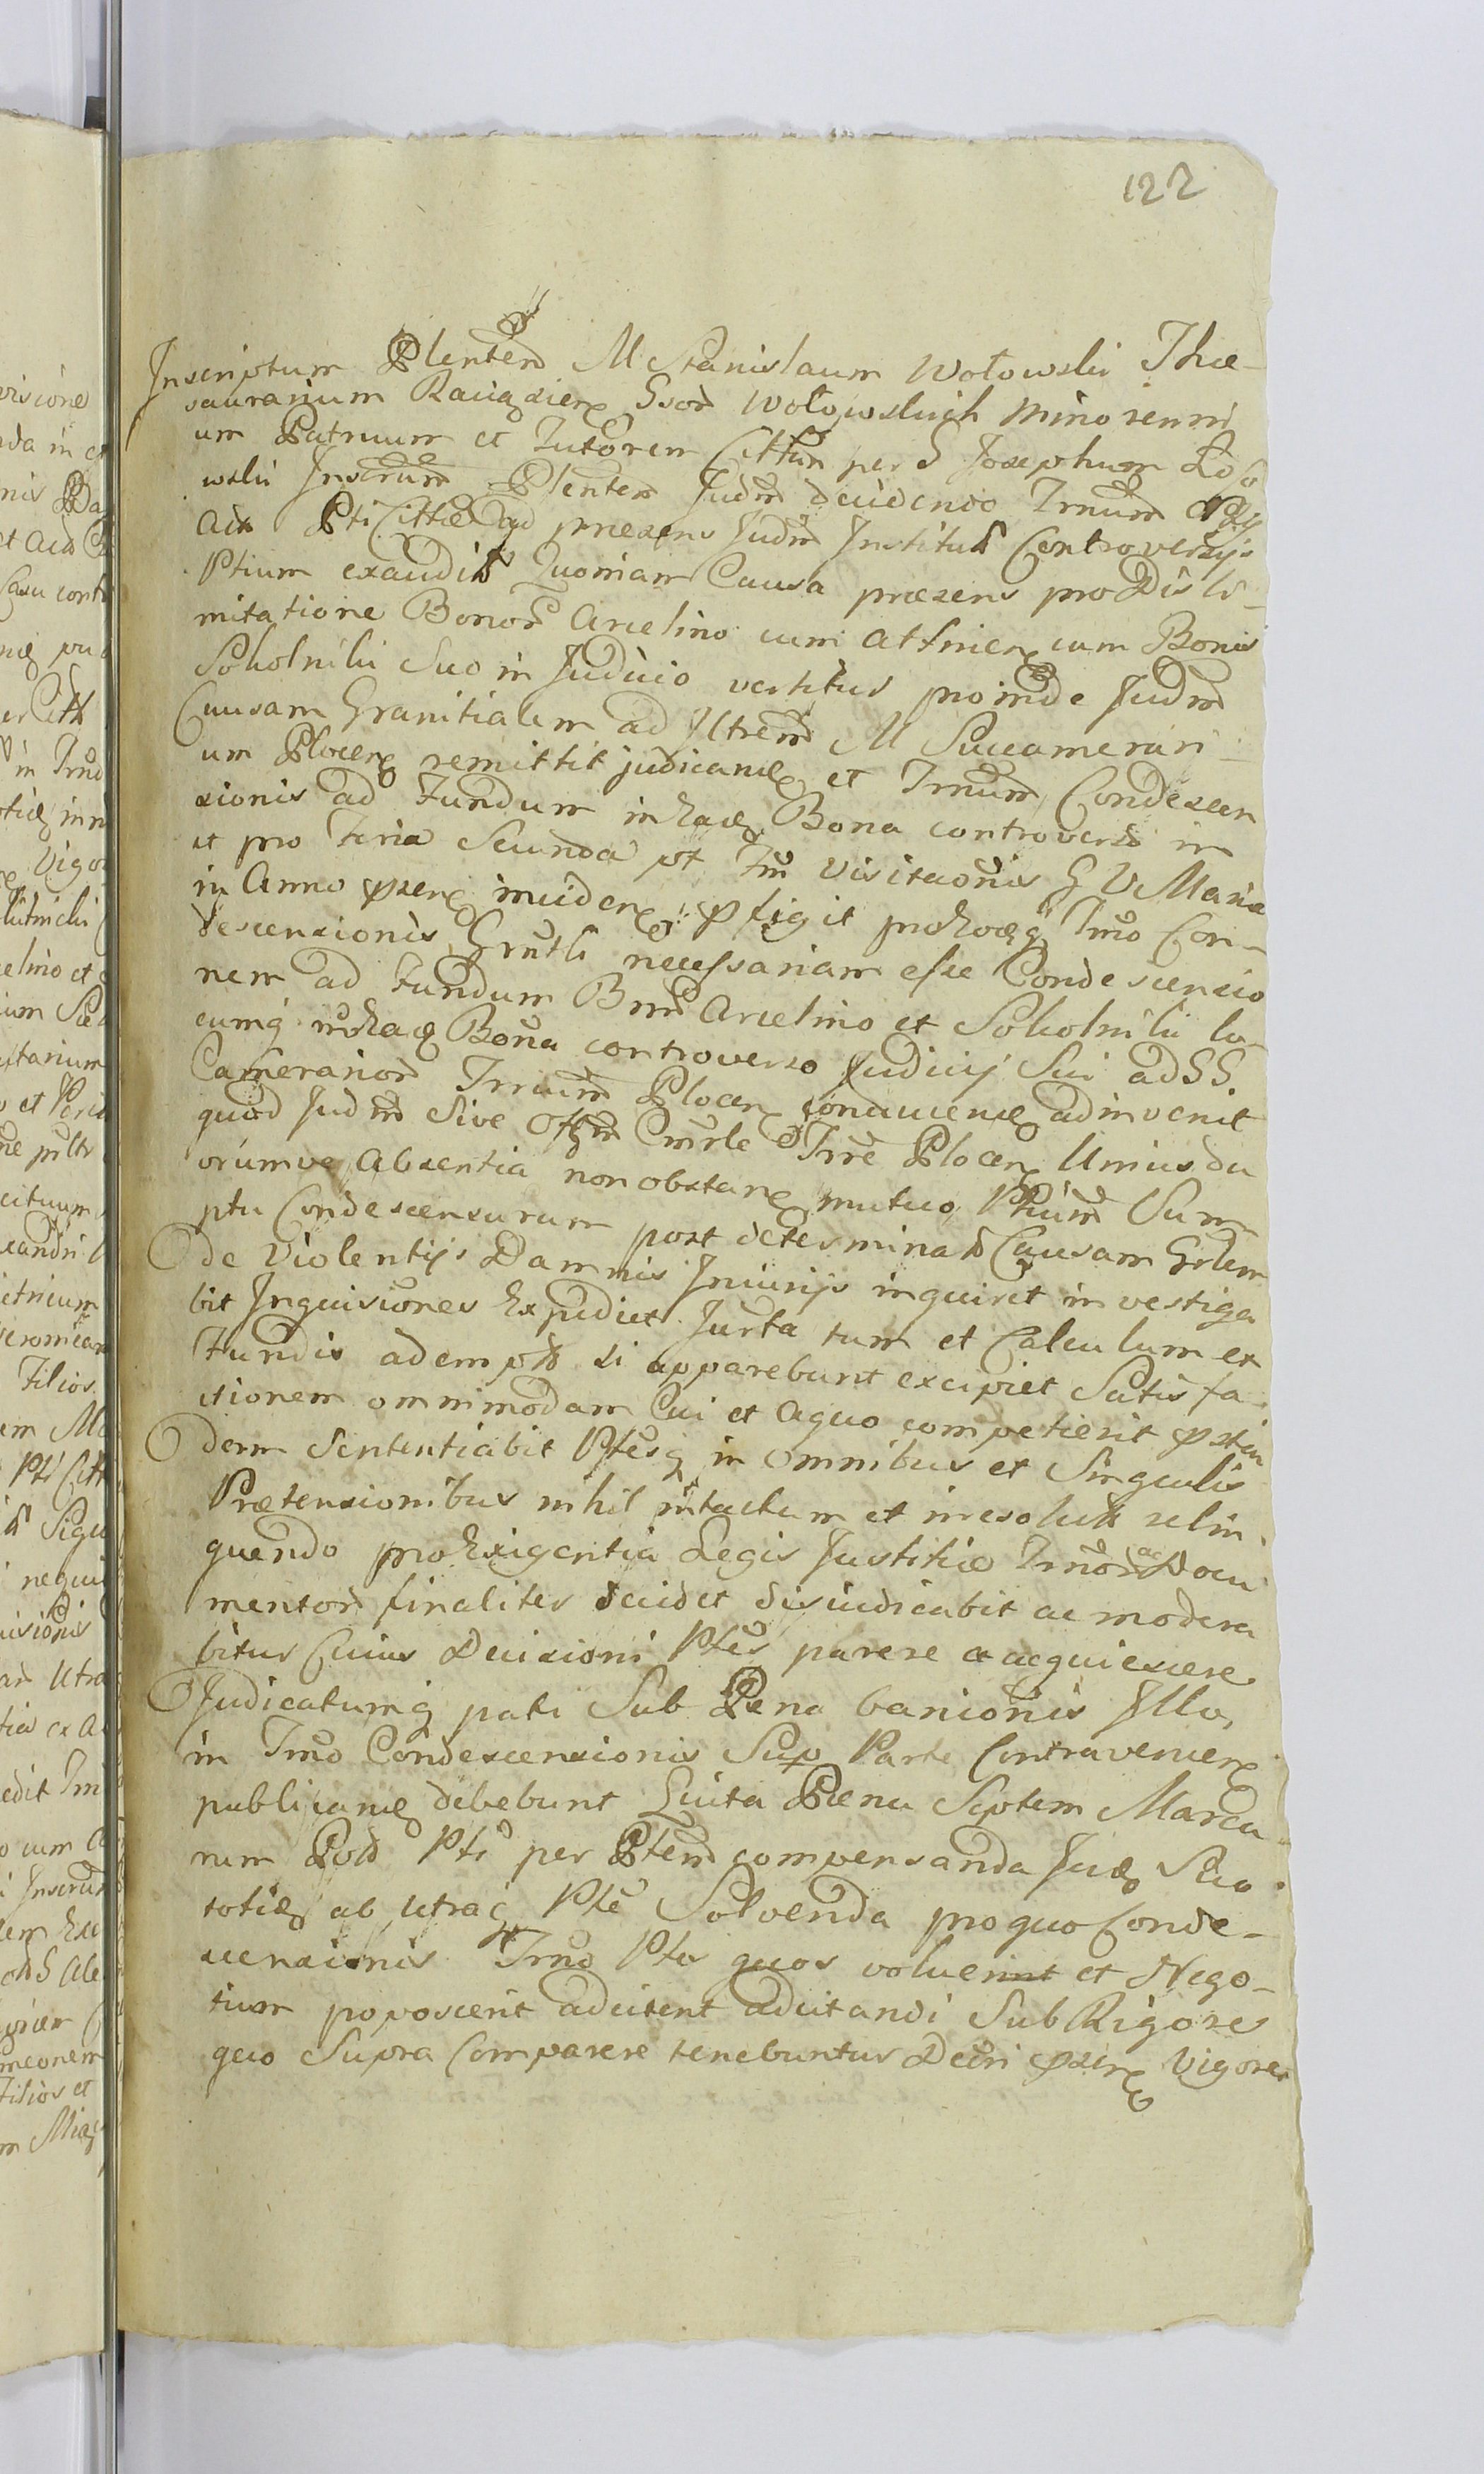 122
Inscriptum Plentem M Stanislaum Wołowski The-
saurarium Raciązien Gsor Wołowskich Minorenni
um Patruum et Tutorem Cittum per G Josephum
wski Inscrum Plentem Judm decidendo Trnum
Ptium exaudit Quoniam Causa præsens pro Disli-
mitatione Bonor Arcelino cum attinen cum Bonis
Sokolniki Suo in Judicio vertitur proinde Judm
Causam Granitialem ad Iltrem M Succamerari-
um Plocen remittit judicand et Trnum Condescen
sionis ad Fundum inhæc Bona controversa in
et pro Feria Secunda pt Ftu Visitaonis B V Maria
in Anno pzen inciden pfigit prohocq Trno Con-
descensionis necessariam esse Condescensio
nem ad Fundum Bnr Arcelino et Sokolniki lo-
cumq inhæc Bona controverso Judicij Sui ad SS.
Camerarior Trrium Plocen adinvenit
quod Judm Sive Offm Cmrle Trre Plocen Unius du
orumve Absentia non obstan mutuo Ptium Sum
ptu Condescensurum post determinat Causam Grlem
de Violentijs Damnis Injurijs inquiret investiga
bit Inquisiones Expediet Jurta tum et Calculum ex
Fundis adempt si apparebunt excipiet Satisfa
ctionem omnimodam Cui et aquo competierit pstan
dam Sententiabit Ptesq in omnibus et Singulis
Prætensionibus nihil intactum et inresolutt relin
quendo pro Exigentia Legis Justitiæ Trnor ac Docu
mentor finaliter decidet dijudicabit ac modera
bitur Cuius Decisioni Ptes parere acquiescere
Judicatumq pati Sub Pæna banionis Illo
in Trno Condescensionis Sup Parte Contravenien
publicand debebunt Luita Pæna Septem Marca
rum Pold Pti per Ptem compensanda
toties ab Utraq Pte Solvenda proquo Conde-
scensionis Trno Ptes quos voluerint et Nego-
tium poposcerit adcitent adcitandi Sub Rigore
quo Supra Comparere tenebuntur Decri pzen Vigore